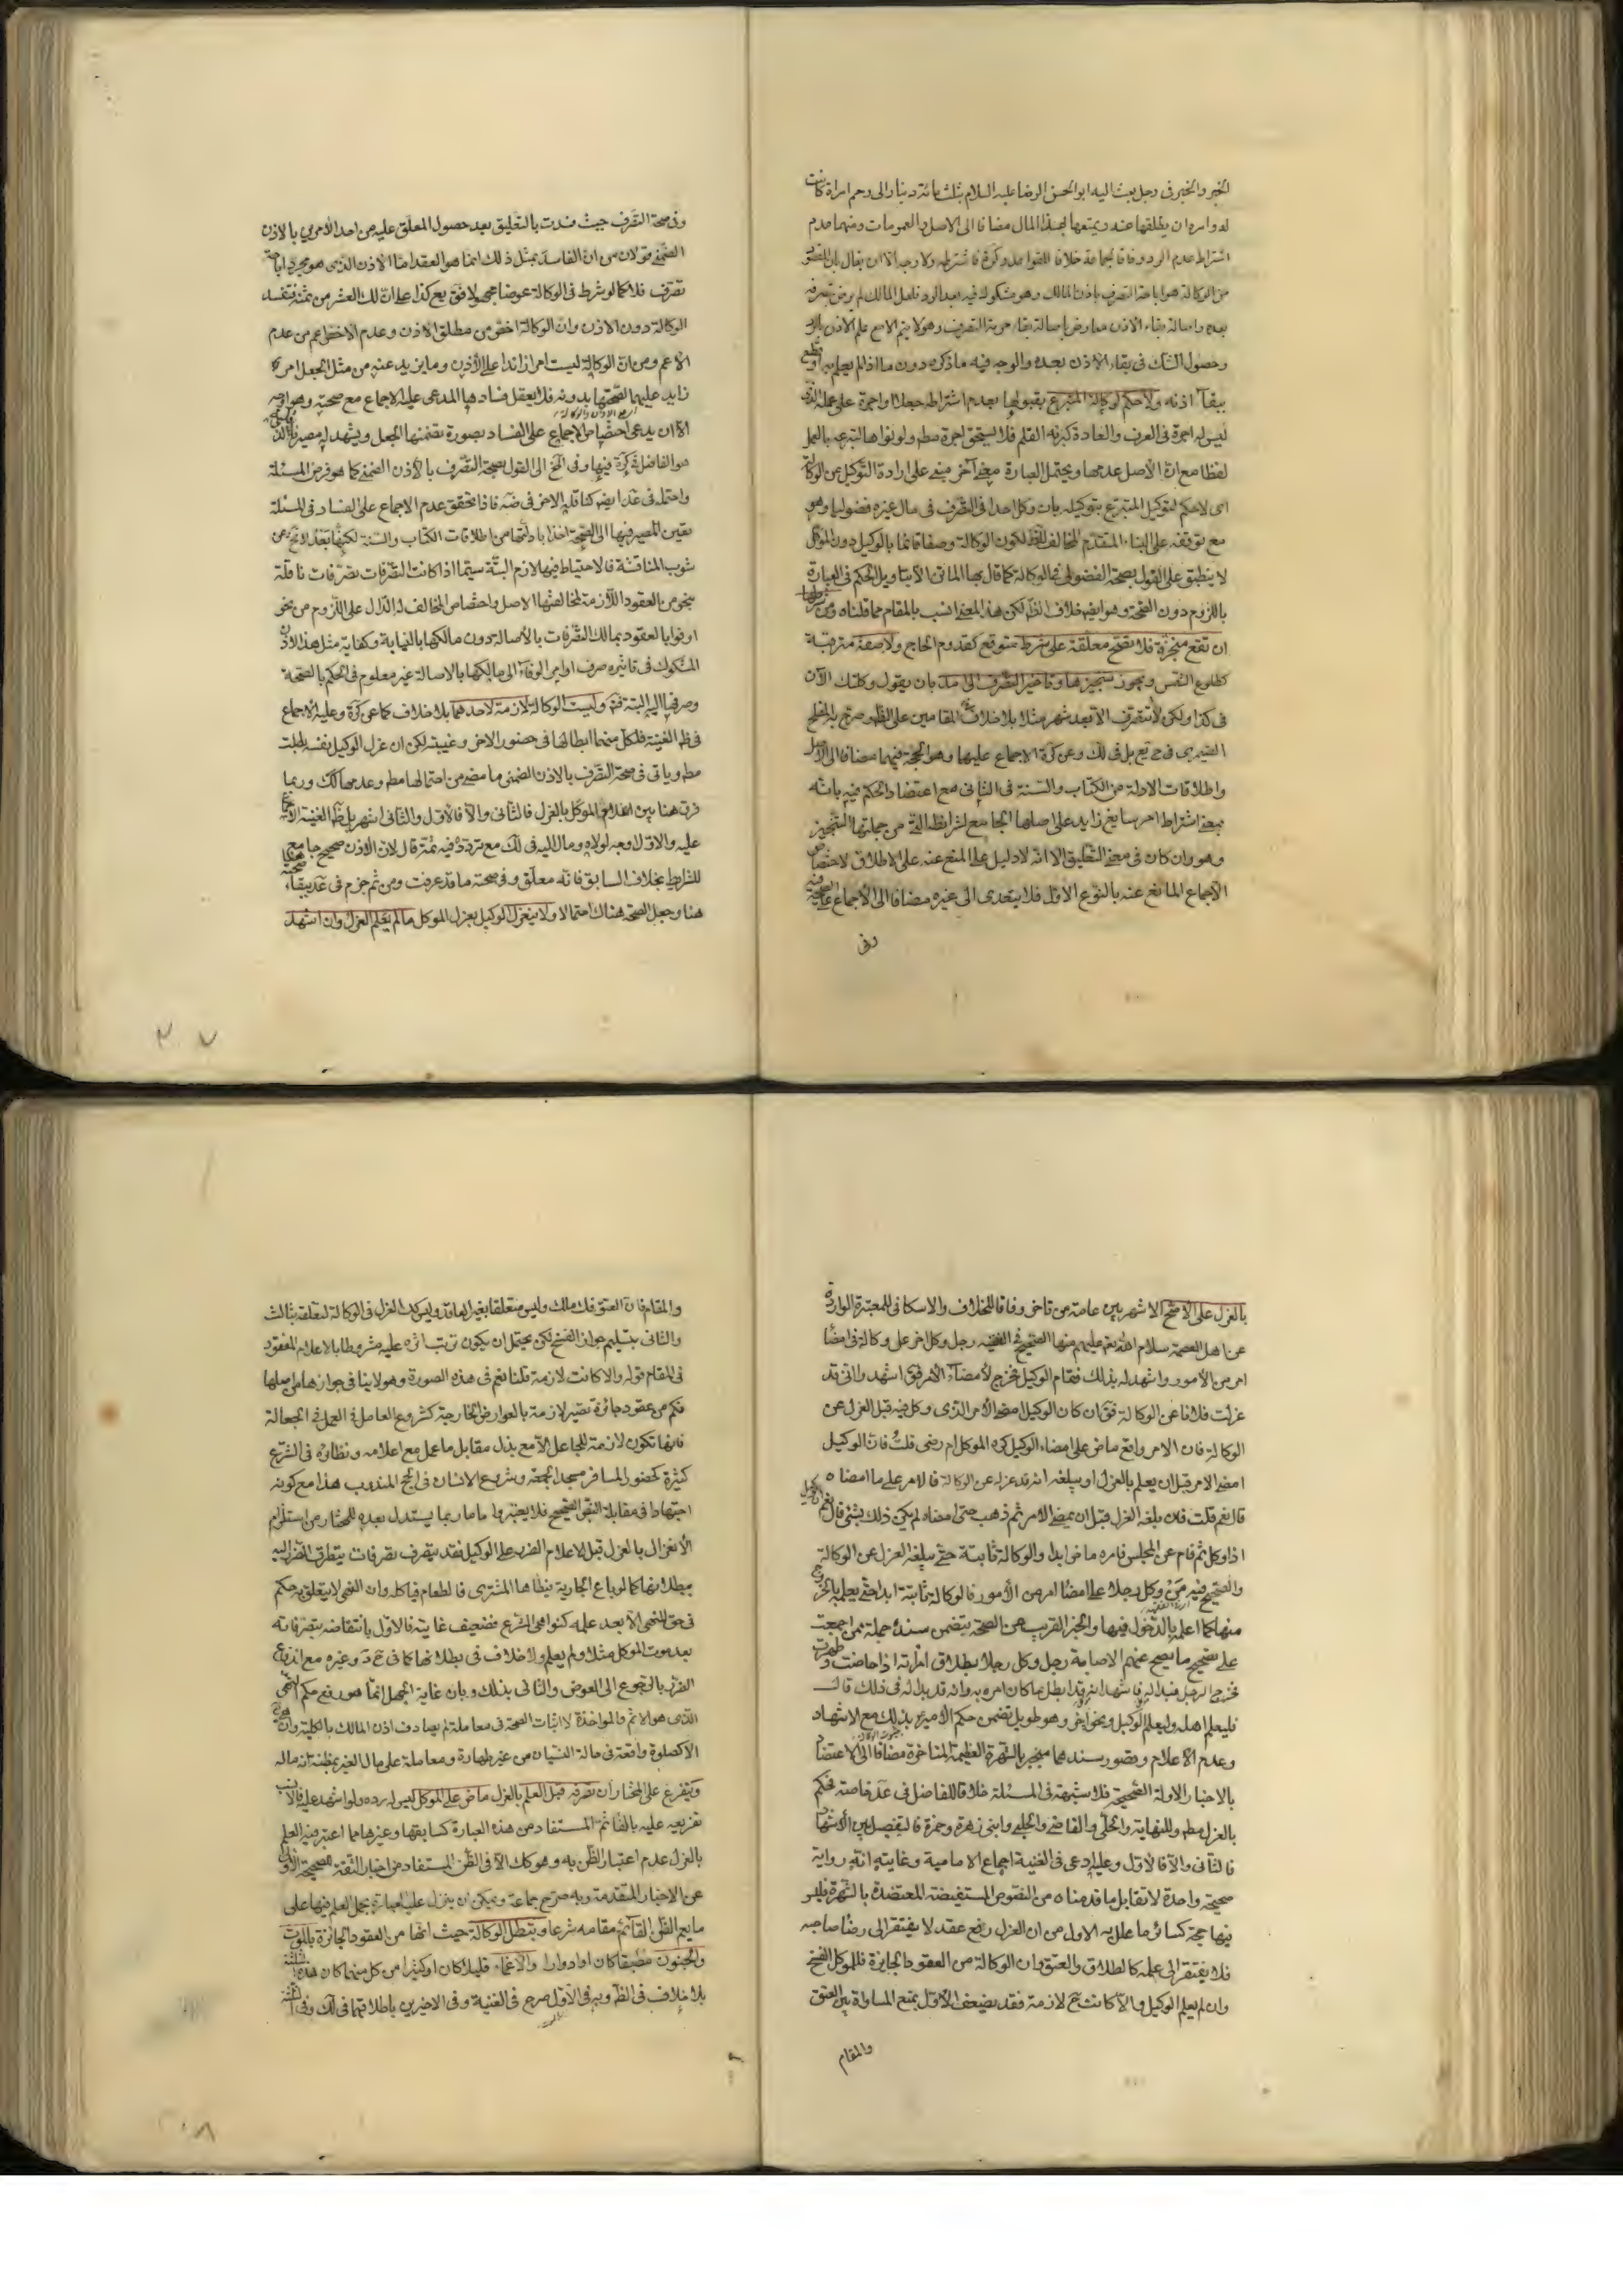 الخبر والخبر في رجل بعث اليه ابو الحسن الرضا عليه السلام بثلثمائة دينار الى رحم امراة كانت
له وامره ان يطلقها عنه ويمتعها بهذا المال مضافا الى الاصل والعمومات ومنها عدم
اشتراط عدم الرد وفاقا لجماعة خلافا للقواعد
من الوكالة هو اباحة التصرف باذن المالك وهو مشكوك فيه بعد الرد فلعل المالك لم يرض بتصرفه
بعده واصالة بقاء الاذن معارض باصالة بقاء حرمة التصرف وهو لا يتم الا مع علم الاذن بالرد
وحصول الشك في بقاء الاذن بعده والوجه فيه ما ذكره دون ما اذا لم يعلم به
ببقاء اذنه ولا حكم لوكالة المتبرع بقبولها بعدم اشتراطه جعلا او اجرة على عمله الذي
ليس له اجرة في العرف والعادة كبريه القلم فلا يستحق اجرة مطم ولو نواها لتبرعه بالعمل
لفظا مع ان الاصل عدمها ويحتمل العبارة معنى آخر مبني على ارادة التوكيل من الوكالة
اى لا حكم لتوكيل المتبرع بتوكيله بان وكل احدا في التصرف في مال غيره فضوليا وهو
مع توقفه على البناء المتقدم المخالف للظ لكون الوكالة وصفا قائما بالوكيل دون الموكل
لا ينطبق على القول بصحة الفضولي في الوكالة كما قال بها الماتن الا بتاويل الحكم في العبارة
باللزوم دون الصحة وهو ايضا خلاف الظ لكن هذا المعنى انسب بالمقام مما قلناه ومن شرطها
ان تقع منجزة فلا تصح معلقة على شرط متوقع كقدوم الحاج ولا صفة مترقبة
كطلوع الشمس ويجوز تنجيزها وتاخير التصرف الى مدة بان يقول وكلتك الآن
في كذا ولكن لا تتصرف الا بعد شهر مثلا بلا خلاف في المقامين على الظ وصرح به المفلح
الصيمري في ح يع بل في لك وعن كرة الاجماع عليهما وهو الحجة فيهما مضافا الى الاصل
واطلاقات الادلة من الكتاب والسنة في الثاني مع اعتضاد الحكم فيه بانه
بمعنى اشتراط امر سايغ زايد على اصلها الجامع لشرايطه التي من جملتها التنجيز
وهو وان كان في معنى التعليق الا انه لا دليل على المنع عنه على الاطلاق لاختصاص
الاجماع المانع عنه بالنوع الاول فلا يتعدى الى غيره مضافا الى الاجماع على الصحة فيه
وفي
وفي صحة التصرف حيث فسدت بالتعليق بعد حصول المعلق عليه من احد الامرين بالاذن
الضمني قولان من ان الفاسد بمثل ذلك انما هو العقد اما الاذن الذى هو مجرد اباحة
تصرف فلا كما لو شرط في الوكالة عوضا مجهولا فق بع كذا على ان لك العشر من ثمنه فتفسد
الوكالة دون الاذن وان الوكالة اخص من مطلق الاذن وعدم الاخص اعم من عدم
الاعم ومن ان الوكالة ليست امرا زائدا على الاذن وما يزيد عنه من مثل الجعل امر
زايد عليها لصحتها بدونه فلا يعقل فسادها المدعى عليه الاجماع مع صحته وهو اوجه
الا ان يدعى اختصاص الاجماع على الفساد بصورة تضمنها الجعل ويشهد له مصير
هو الفاضل في كرة فيها وفي الح الى القول بصحة التصرف بالاذن الضمني كما هو فرض المسئلة
واحتمله في عد ايضا كنا قليه الاخر في ضه فاذا تحقق عدم الاجماع على الفساد في المسئلة
تعين المصير فيها الى الصحة اخذا بادلتها من اطلاقات الكتاب والسنة لكنها بعد لا تخ عن
شوب المناقشة فالاحتياط فيها لازم البتة سيما اذا كانت التصرفات تصرفات ناقلة
بنحو من العقود اللازمة لمخالفتها الاصل واختصاص المخالف له الدال على اللزوم من نحو
اوفوا بالعقود بمالك التصرفات بالاصالة دون مالكها بالنيابة وكفاية مثل هذا الاذن
المشكوك في تاثيره صرف اوامر الوفاء الى مالكها بالاصالة غير معلوم في الحكم بالصحة
وصرفها اليه البتة فتم وليست الوكالة لازمة لاحدهما بلا خلاف كما عن كرة وعليه الاجماع
في ظ الغنية فلكل منهما ابطالها في حضور الاخر وغيبته لكن ان عزل الوكيل نفسه بطلت
مطم وياتى في صحة التصرف بالاذن الضمني ما مضى من احتمالها مطم وعدمها كك وربما
فرق هنا بين اعلام الموكل بالعزل فالثانى والا فالاول والثانى اشهر بل ظ الغنية الاجماع
عليه والاول اوجه لولاه ومال اليه في لك مع تردده فيه ثمة قال لان الاذن صحيح جامع
للشرايط بخلاف السابق فانه معلق وفي صحته ما قد عرفت ومن ثم جزم في عد ببقاء صحته
هنا وجعل الصحة هناك احتمالا ولا ينعزل الوكيل بعزل الموكل ما لم يعلم العزل وان اشهد
٢٠٧
بالعزل على الاصح الاشهر بين عامة من تاخر وفاقا للخلاف والاسكافي للمعتبرة الواردة
عن اهل العصمة سلام الله تع عليهم منها الصحيح في الفقيه رجل وكل اخر على وكالة في امضاء
امر من الامور واشهد له بذلك فقام الوكيل فخرج لامضاء الامر فق اشهدوا اني قد
عزلت فلانا عن الوكالة فق ان كان الوكيل امضى الامر الذى وكل فيه قبل العزل عن
الوكالة فان الامر واقع ماض على امضاء الوكيل كره الموكل ام رضى قلت فان الوكيل
امضى الامر قبل ان يعلم بالعزل او يبلغه انه قد عزله عن الوكالة فالامر على ما امضاه
قال نعم قلت فان بلغه العزل قبل ان يمضى الامر ثم ذهب حتى امضاه لم يكن ذلك بشئ قال نعم ان الوكيل
اذا وكل ثم قام عن المجلس فامره ماض ابدا والوكالة ثابتة حتى يبلغه العزل عن الوكالة
والصحيح فيه من وكل رجلا على امضاء امر من الامور فالوكالة ثابتة ابدا حتى يعلمه بالخروج
منها كما اعلمه بالدخول فيها والخبر القريب من الصحة بتضمن سنده جملة ممن اجمعت
على تصحيح ما يصح عنهم الاصابة رجل وكل رجلا بطلاق امراته اذا حاضت وطهرت
فخرج الرجل فبدا له فاشهد انه قد ابطل ما كان امره به وانه قد بدا له في ذلك قال
فليعلم اهله وليعلم الوكيل ونحو اخر وهو طويل تضمن حكم الامير بذلك مع الاشهاد
وعدم الاعلام وقصور سندهما منجبر بالشهرة العظيمة المتاخرة مضافا الى الاعتضاد
بالاخبار الاولة الصحيحة فلا شبهة في المسئلة خلافا للفاضل في عد خاصة فحكم
بالعزل مطم وللنهاية والحلي والقاضي والحلبي وابني زهرة وحمزة فالتفصيل بين الاشهاد
فالثانى والا فالاول وعليه ادعى في الغنية اجماع الامامية وغايته انه رواية
صحيحة واحدة لا تقابل ما قدمناه من النصوص المستفيضة المعتضدة بالشهرة فليس
فيها حجة كسائر ما علل به الاول من ان العزل رفع عقد لا يفتقر الى رضا صاحبه
فلا يفتقر الى علمه كالطلاق والعتق وان الوكالة من العقود الجايزة فللموكل الفسخ
وان لم يعلم الوكيل والا كانت ح لازمة فقد يضعف الاول بمنع المساواة بين العتق
والمقام
والمقام فان العتق فك ملك وليس متعلقا بغير العاقد وليس كذا العزل في الوكالة لتعلقه بثالث
والثانى بتسليم جواز الفسخ لكن يحتمل ان يكون ترتب اثره عليه مشروطا بالاعلام المفقود
في المقام قوله والا كانت لازمة قلنا نعم في هذه الصورة وهو لا ينافى جوازها من اصلها
فكم من عقود جائزة تصير لازمة بالعوارض الخارجية كشروع العامل في العمل في الجعالة
فانها تكون لازمة للجاعل الا مع بذل مقابل ما عمل مع اعلامه ونظائره في الشرع
كثيرة كحضور المسافر مسجد الجمعة وشروع الانسان في الحج المندوب هذا مع كونه
اجتهادا في مقابلة النص الصحيح فلا يعتبر واما ما ربما يستدل بعده للمختار من استلزام
الانعزال بالعزل قبل الاعلام الضرر على الوكيل فقد يتصرف تصرفات يتطرق الضرر اليه
ببطلانها كما لو باع الجارية فيطاها المشترى فالطعام فياكله وان النهى لا يتعلق به حكم
في حق المنهى الا بعد علمه كنواهى الشرع فضعيف غايته فالاول بانتقاضه بتصرفاته
بعد موت الموكل مثلا ولم يعلم ولا خلاف في بطلانها كما في ح د وغيره مع اندفاع
الضرر بالرجوع الى العوض والثانى بذلك وبان غاية الجهل انما هو رفع حكم النهى
الذى هو الاثم والمواخذة لا اثبات الصحة في معاملة لم يصادف اذن المالك بالكلية وان هو
الا كصلوة واقعة في حالة النسيان من غير طهارة ومعاملة على مال الغير بمظنة انه ماله
ويتفرع على المختار ان تصرفه قبل العلم بالعزل ماض على الموكل ليس له رده ولو اشهد عليه
تفريعه عليه بالفاء ثم المستفاد من هذه العبارة كسابقها وغيرها مما اعتبر فيه العلم
بالعزل عدم اعتبار الظن به وهو كك الا في الظن المستفاد من اخبار الثقة لصحيحة الاولى
عن الاخبار المتقدمة وبه صرح جماعة ويمكن ان ينزل عليه العبارة بحمل العلم فيها على
ما يعم الظن القائم مقامه شرعا وتبطل الوكالة حيث انها من العقود الجائزة بالموت
والجنون مطبقا كان او ادوارا والاغماء قليلا كان او كثيرا من كل منهما كان هذه الثلثة
بلا خلاف في الظ وبه في الاول صرح في الغنية وفي الاخيرين باطلاقهما في لك وفي
٢٠٨